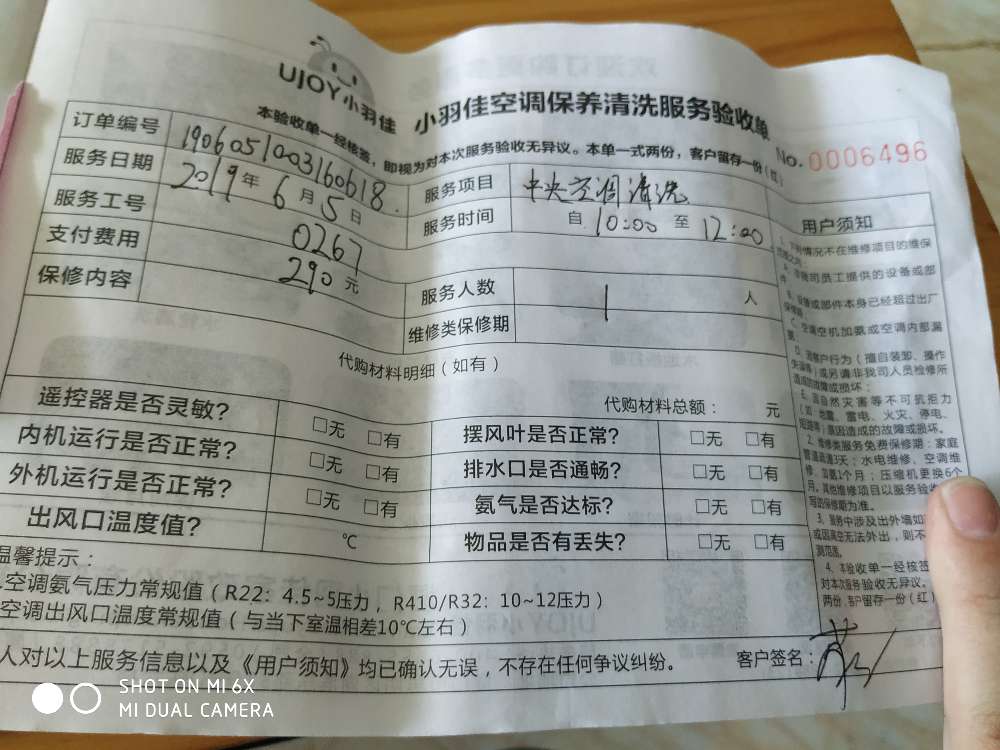 UJOY小羽佳
小羽佳空调保养清洗服务验收单
本验收单一经核签，即视为对本次服务验收无异议。本单一式两份，客户留存一份（红）
No.0006496
订单编号 1906051003160618
服务日期 2019年6月5日 服务项目 中央空调清洗
服务工号 0267 服务时间 自10:00至12:00
支付费用 290元 服务人数 1人
保修内容 维修类保修期
代购材料明细（如有）
代购材料总额： 元
遥控器是否灵敏? □无 □有 摆风叶是否正常? □无 □有
内机运行是否正常? □无 □有 排水口是否通畅? □无 □有
外机运行是否正常? □无 □有 氨气是否达标? □无 □有
出风口温度值? ℃ 物品是否有丢失? □无 □有
温馨提示：
空调氨气压力常规值（R22：4.5~5压力，R410/R32：10~12压力）
空调出风口温度常规值（与当下室温相差10℃左右）
人对以上服务信息以及《用户须知》均已确认无误，不存在任何争议纠纷。 客户签名：
用户须知
情况不在维修项目的维保
司员工提供的设备或部
设备或部件本身已经超过出厂
C、空调空机加氨或空调内部漏
客户行为（擅自装卸、操作
）或另请非我司人员检修所
造成的故障或损坏；
E、因自然灾害等不可抗拒力
（如：地震、雷电、火灾、停电、
）原因造成的故障或损坏。
2、维修类服务免费保修期：家庭
管道疏通3天；水电维修、空调维
修、加氨1个月；压缩机更换6个
月。其他维修项目以服务验收
写的保修期为准。
3、服务中涉及出外墙如
或因高空无法外出，则不
测范围。
4、本验收单一经核签
对本次服务验收无异议。
两份，客户留存一份（红）
SHOT ON MI 6X
MI DUAL CAMERA